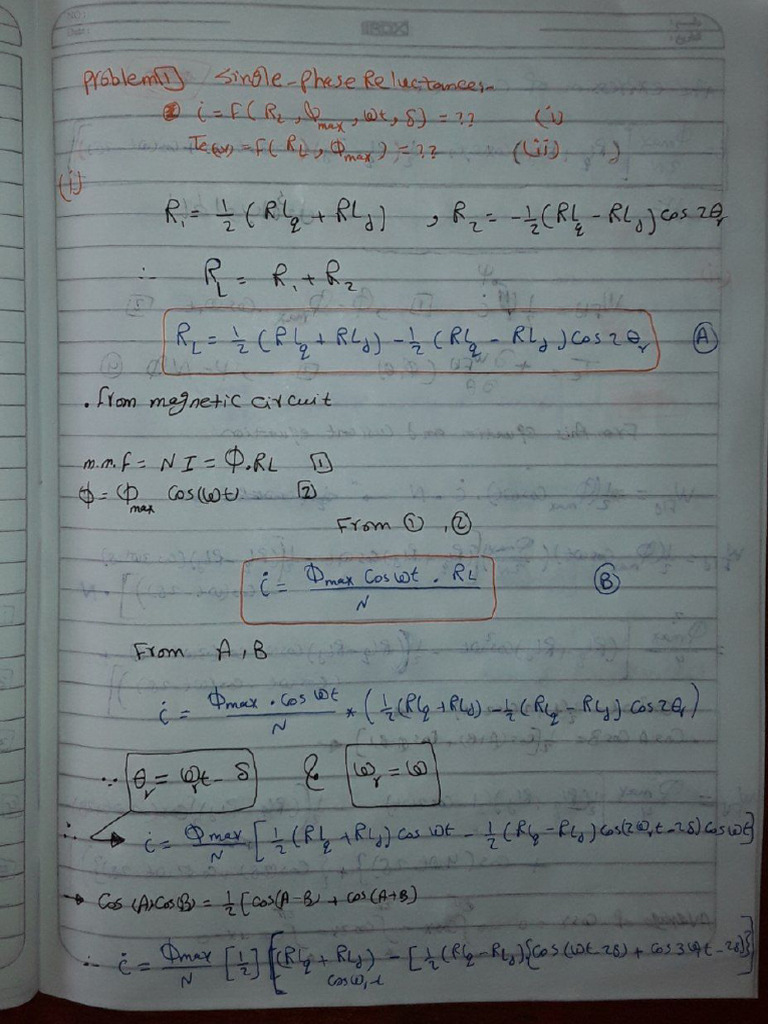 NO:
Date:
ROX
Problem 1 Single-Phase Reluctances-
i = F( RL , Φmax , ωt , δ) = ?? (i)
Te(av) = F( RL , Φmax ) = ?? (ii)
(i)
R1 = 1/2 ( RLq + RLd ) , R2 = -1/2 (RLq - RLd) cos 2θr
∴ RL = R1 + R2
RL = 1/2 ( RLq + RLd ) - 1/2 (RLq - RLd ) cos 2θr (A)
. from magnetic circuit
m.m.f = N I = Φ.RL [1]
Φ = Φmax Cos(ωt) [2]
From (1) , (2)
i = Φmax Cos ωt . RL / N (B)
From A , B
i = Φmax . cos ωt / N * ( 1/2 (RLq + RLd) - 1/2 (RLq - RLd) cos 2θr )
∵ θr = ωrt - δ & ωr = ω
∴ → i = Φmax / N [ 1/2 (RLq + RLd) cos ωt - 1/2 (RLq - RLd) cos(2ωrt - 2δ) cos ωt ]
→ Cos (A) Cos(B) = 1/2 [ cos(A-B) + cos(A+B)
∴ i = Φmax / N [1/2] [ (RLq + RLd) cos ωrt - [ 1/2 (RLq - RLd) { cos (ωt - 2δ) + cos 3ωrt - 2δ } ]